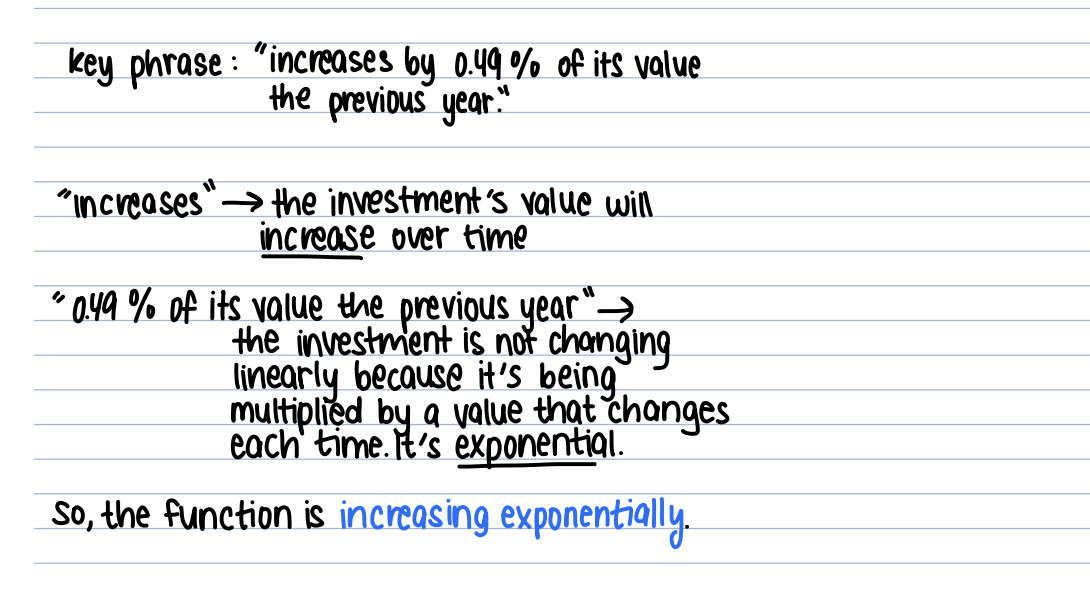 key phrase: "increases by 0.49% of its value
the previous year."
"increases" → the investment's value will
increase over time
"0.49% of its value the previous year" →
the investment is not changing
linearly because it's being
multiplied by a value that changes
each time. It's exponential.
So, the function is increasing exponentially.